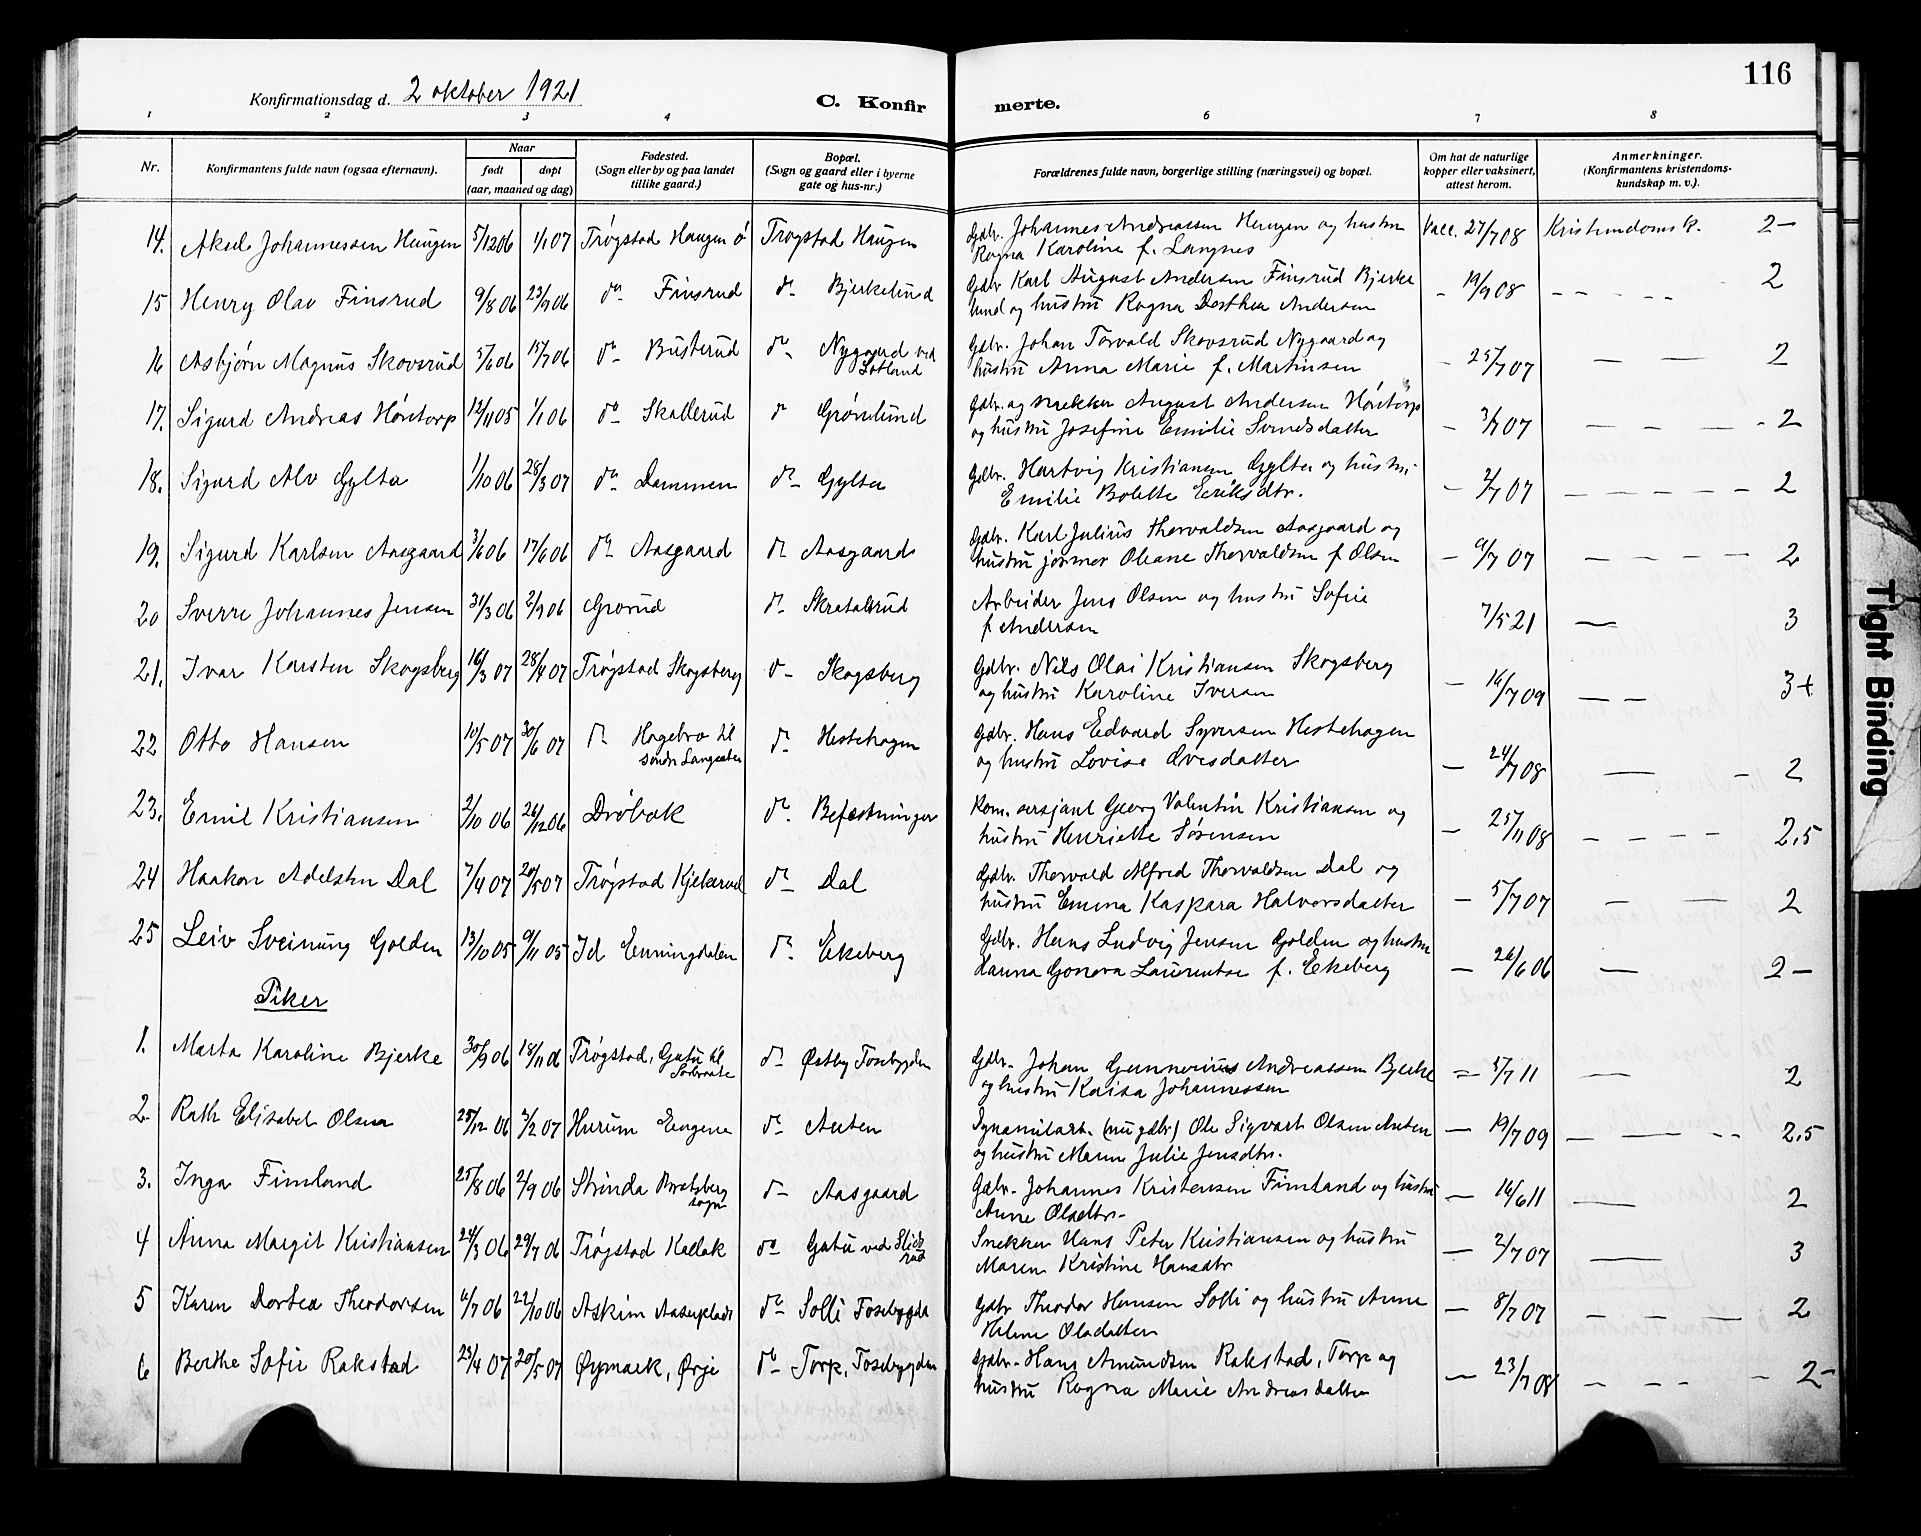 116
Konfirmationsdag d. 2 oktober 1921
C. Konfir merte.
1 2 3 4 6 7 8
Nr. Konfirmantens fulde navn (ogsaa efternavn). Naar født døpt (aar, maaned og dag) Fødested. (Sogn eller by og paa landet tillike gaard.) Bopæl. (Sogn og gaard eller i byerne gate og hus-nr.) Forældrenes fulde navn, borgerlige stilling (næringsvei) og bopæl. Om hat de naturlige kopper eller vaksinert, attest herom. Anmerkninger. (Konfirmantens kristendomskundskap m. v.).
14. Aksel Johannessen Haugen 5/12 06 1/1 07 Trøgstad Haugen ö Trøgstad Haugen Gdbr. Johannes Andreassen Haugen og hustru Vacc. 27/7 08 Kristendomsk. 2-
Ragna Karoline f. Langnes
15 Henry Olav Finsrud 9/8 06 23/9 06 do Finsrud do Bjerkelund Gdbr Karl August Andersen Finsrud Bjerke - 19/9 08 - - - - 2
lund og hustru Ragna Dorthea Andersen
16 Asbjørn Magnus Skovsrud 5/6 06 15/7 06 do Busterud do Nygaard ved Gdbr. Johan Torvald Skovsrud Nygaard og - 25/7 07 - - 2
hustru Anna Marie f. Martinsen
17. Sigurd Andreas Höntorp 12/11 05 1/1 06 do Skallerud do Grønlund Gdbr. og snekker August Andersen Höntorp - 3/7 07 - - - - 2
og hustru Josefine Emilie Svendsdatter
18. Sigurd Alv Gylta 1/10 06 28/3 07 do Dammen do Gylta Gdbr. Hartvig Kristiansen Gylta og hustru - 2/7 07 - - - - - 2
Emilie Bolette Eriksdtr.
19. Sigurd Karlsen Aasgaard 3/6 06 17/6 06 do Aasgaard do Aasgaard Gdbr. Karl Julius Thorvaldsen Aasgaard og - 9/7 07 - - - - 2
hustru jormor Oleane Thorvaldsen f Olsen
20 Sverre Johannes Jensen 31/3 06 2/9 06 Grorud do Skratalsrud Arbeider Jens Olsen og hustru Sofie 7/5 21 - 3
f Andersen
21. Ivar Karsten Skogsberg 16/3 07 28/4 07 Trøgstad Skogsberg do Skogsberg Gdbr. Nils Olai Kristiansen Skogsberg - 16/7 09 - - 3+
og hustru Karoline Iversen
22 Otto Hansen 10/5 07 30/6 07 do Hagebro til do Hestehagen Gdbr. Hans Edvard Syversen Hestehagen - 24/7 08 - - 2
söndr Langsæter og hustru Lovise Ovesdatter
23. Emil Kristiansen 2/10 06 26/12 06 Drøbak do Befæstninger Kom. sersjant Georg Valentin Kristiansen og - 25/11 08 - - - - 2,5
hustru Henriette Sørensen
24 Haakon Adelsten Dal 7/4 07 20/5 07 Trøgstad Kjekerud do Dal Gdbr. Thorvald Alfred Thorvaldsen Dal og - 5/7 07 - - 2
hustru Emma Kaspara Halvorsdatter
25 Leiv Sveinung Golden 13/10 05 9/11 05 Id Enningdalen do Ekeberg Gdbr. Hans Ludvig Jensen Golden og hustru - 26/6 06 - 2-
Hanna Gonora Laurentse f. Ekeberg
Piker
1. Marta Karoline Bjerke 30/9 06 18/11 06 Trøgstad, Gatu til do Østby Tosebygden Gdbr. Johan Gunnerius Andreassen Bjerke = 5/7 11 - 2
og hustru Kaisa Johannessen
2. Ruth Elisabet Olsen 25/12 06 3/2 07 Hurum Engene do Auten Dynamitarb. (nu gdbr) Ole Sigvart Olsen Auten - 19/7 09 - - - - 2,5
og hustru Maren Julie Jensdtr.
3. Inga Fimland 25/8 06 2/9 06 Strinda Bratsberg sogn do Aasgaard Gdbr. Johannes Kristensen Fimland og hustru - 16/6 11 - 2
Anne Olsdtr-
4 Anna Margit Kristiansen 24/3 06 29/7 06 Trøgstad Kallak do Gatu ved Snekker Hans Peter Kristiansen og hustru - 2/7 07 - 3
Maren Kristine Hansdtr
5 Karen Dortea Theodorsen 6/7 06 22/10 06 Askim do Solli Tosebygda Gdbr Theodor Hansen Solli og hustru Anne - 8/7 07 - - - 2
Helene Olsdatter
6 Berthe Sofie Rakstad 23/4 07 20/5 07 Øymark, Ørje do Torp, Tosebygden Gdbr. Hans Amundsen Rakstad, Torp og - 23/7 08 - - - - 2-
hustru Ragna Marie Andreasdatter
Tight Binding